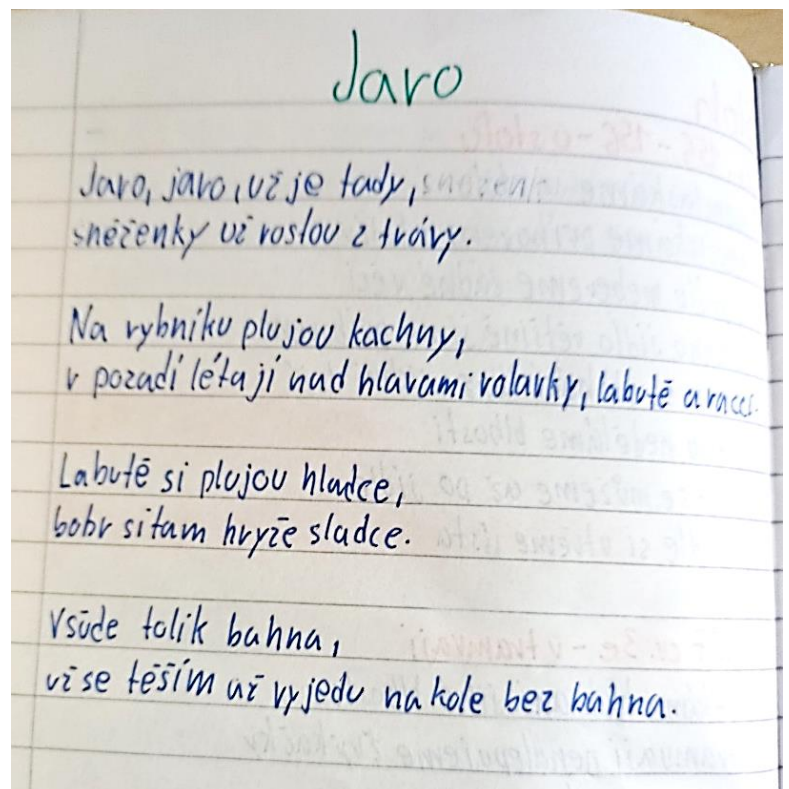 Jaro
Jaro, jaro, už je tady,
sněženky už rostou z trávy.
Na rybníku plujou kachny,
v pozadí létají nad hlavami volavky, labutě a racci.
Labutě si plujou hladce,
bobr si tam hryže sladce.
Všude tolik bahna,
už se těším až vyjedu na kole bez bahna.